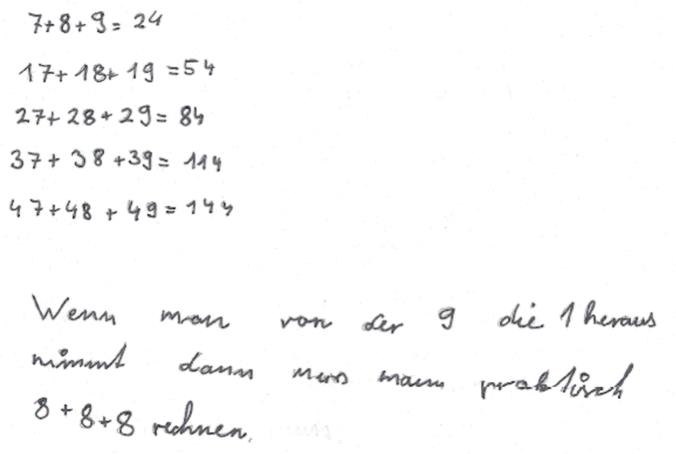 7+8+9= 24
17+18+19 =54
27+28+29= 84
37+38+39= 114
47+48+49=144
Wenn man von der 9 die 1 heraus
nimmt dann mus mann praktisch
8+8+8 rechnen.